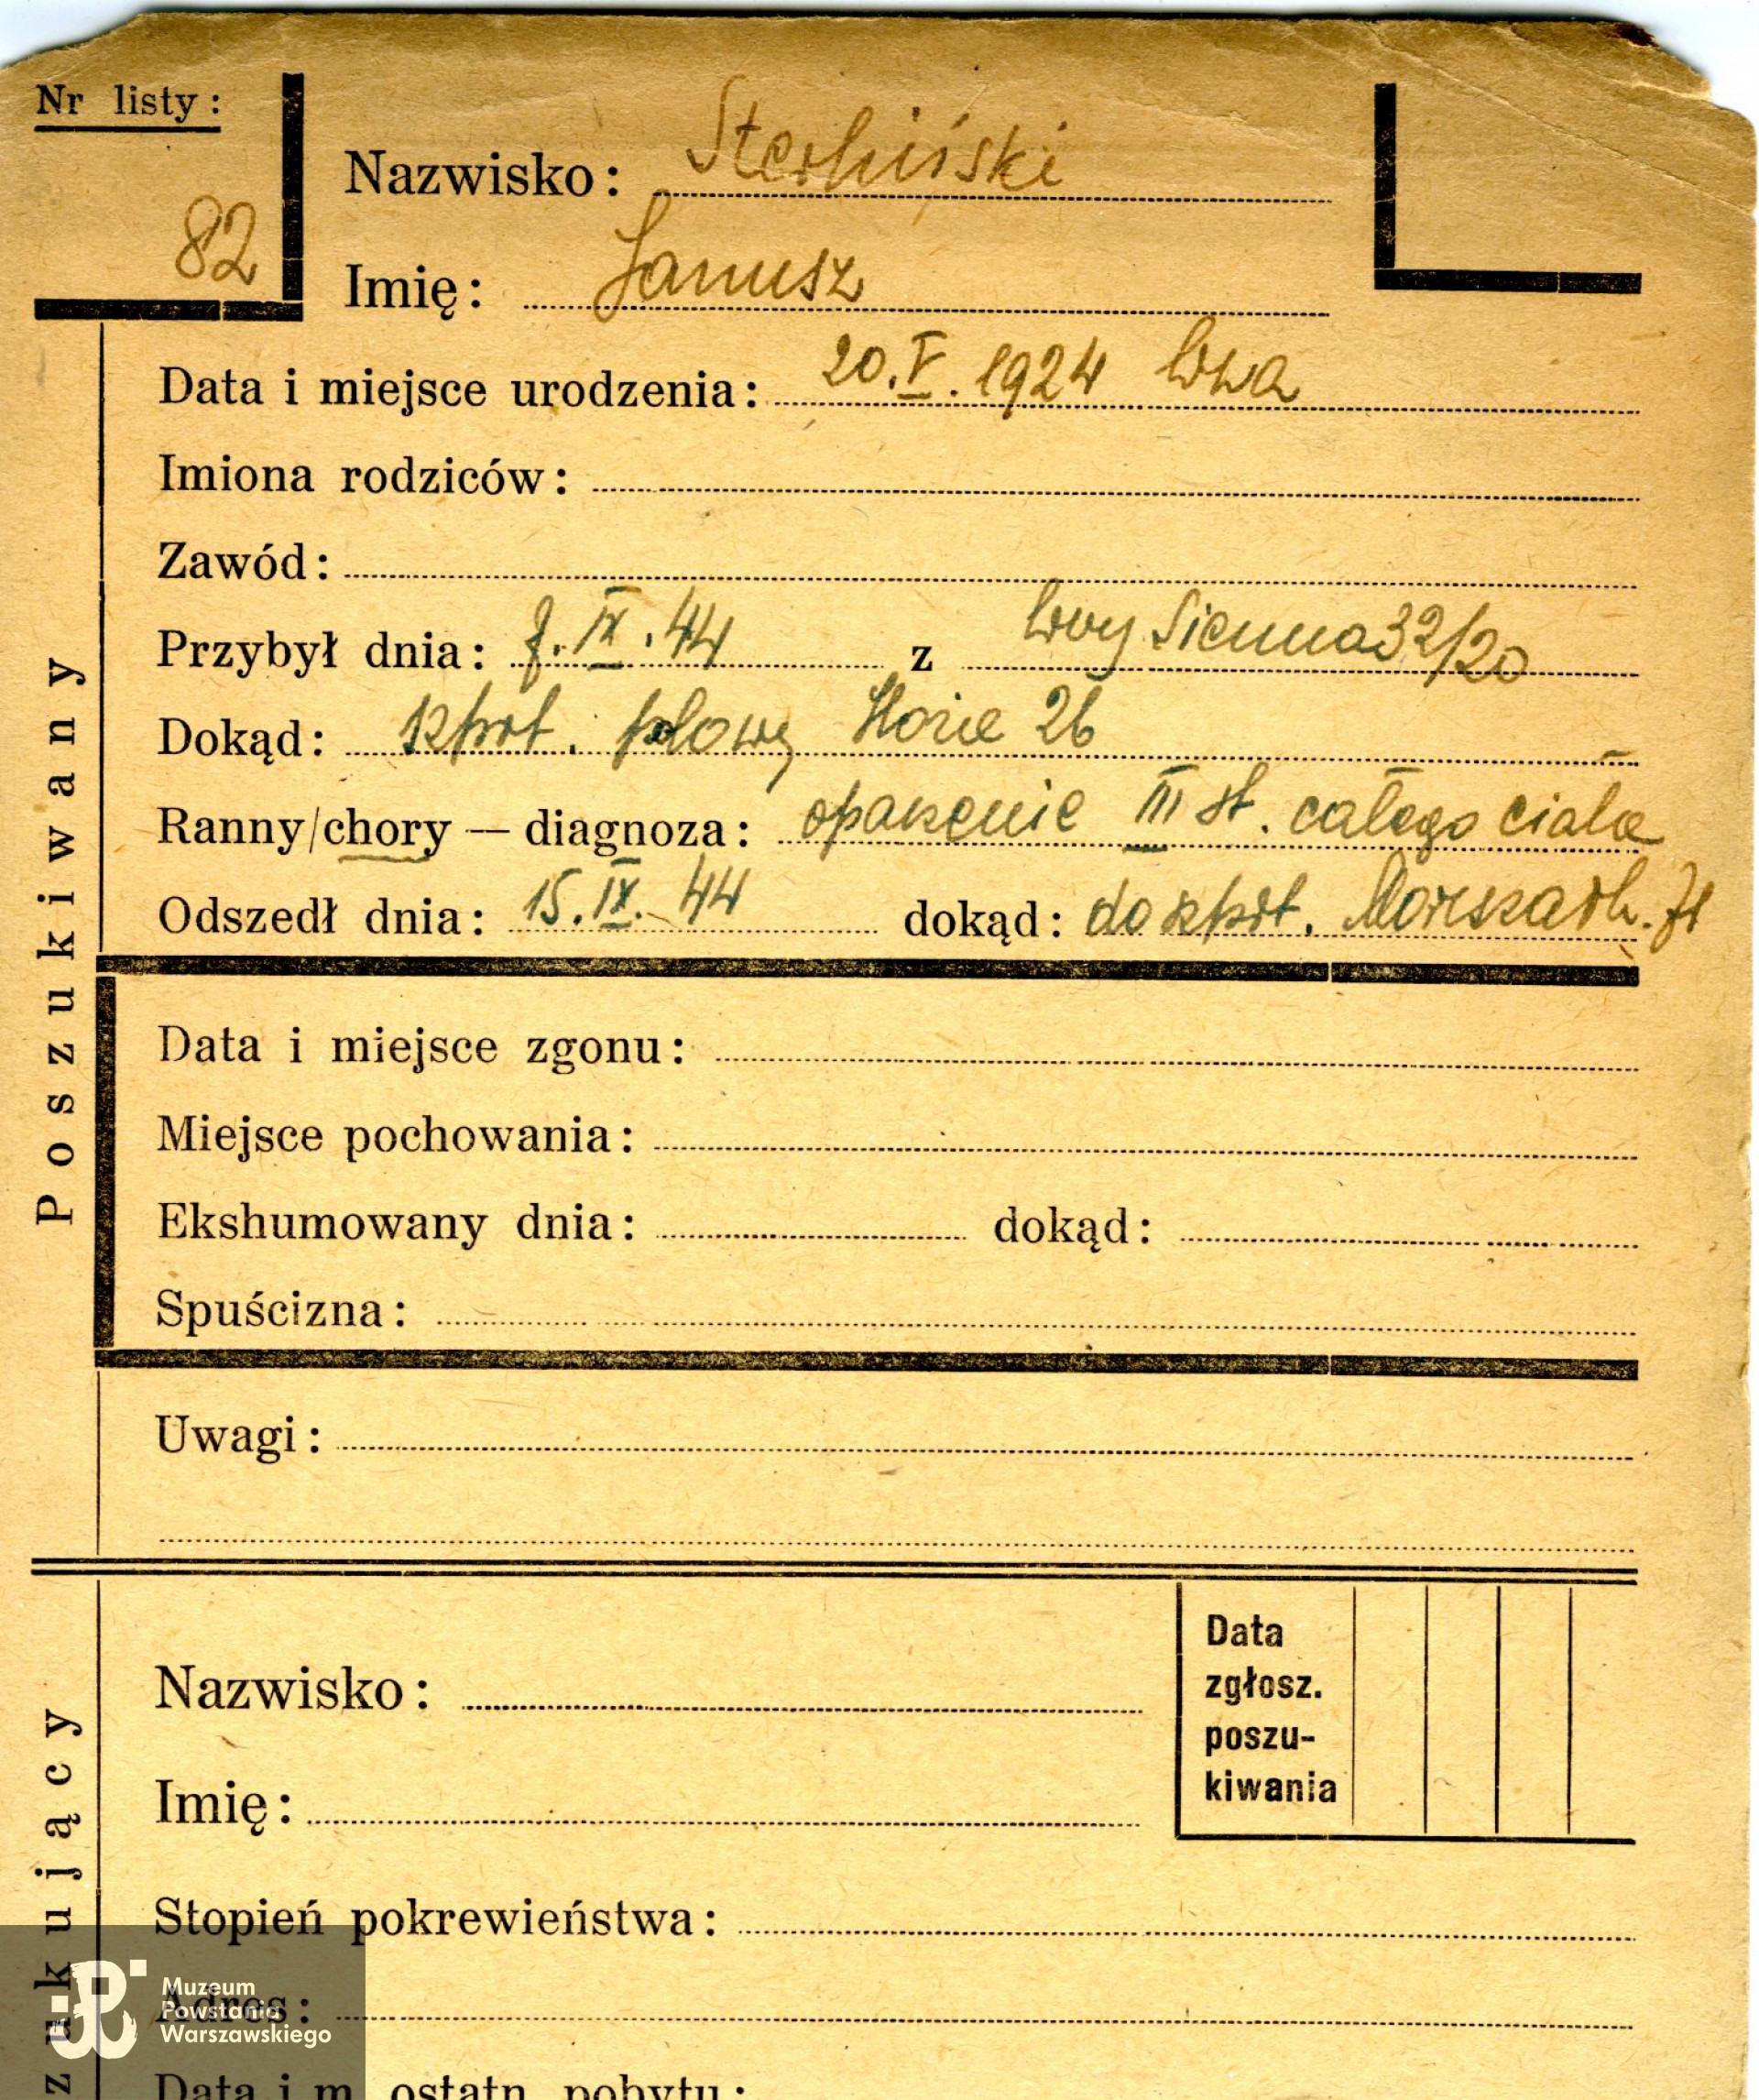 Nr listy:
82
Nazwisko: Sterliński
Imię: Janusz
Data i miejsce urodzenia: 20.V.1924 Wwa
Imiona rodziców:
Zawód:
Przybył dnia: 7.IX.44 z Wwy Sienna 32/20
Dokąd: szpit. polowy Hoża 26
Ranny/chory — diagnoza: oparzenie III st. całego ciała
Odszedł dnia: 15.IX.44 dokąd: do szpit.
Data i miejsce zgonu:
Miejsce pochowania:
Ekshumowany dnia: dokąd:
Spuścizna:
Uwagi:
Poszukiwany
Nazwisko:
Imię:
Data
zgłosz.
poszu-
kiwania
Stopień pokrewieństwa:
Adres:
Data i m. ostatn. pobytu:
zukujący
Muzeum
Powstania
Warszawskiego